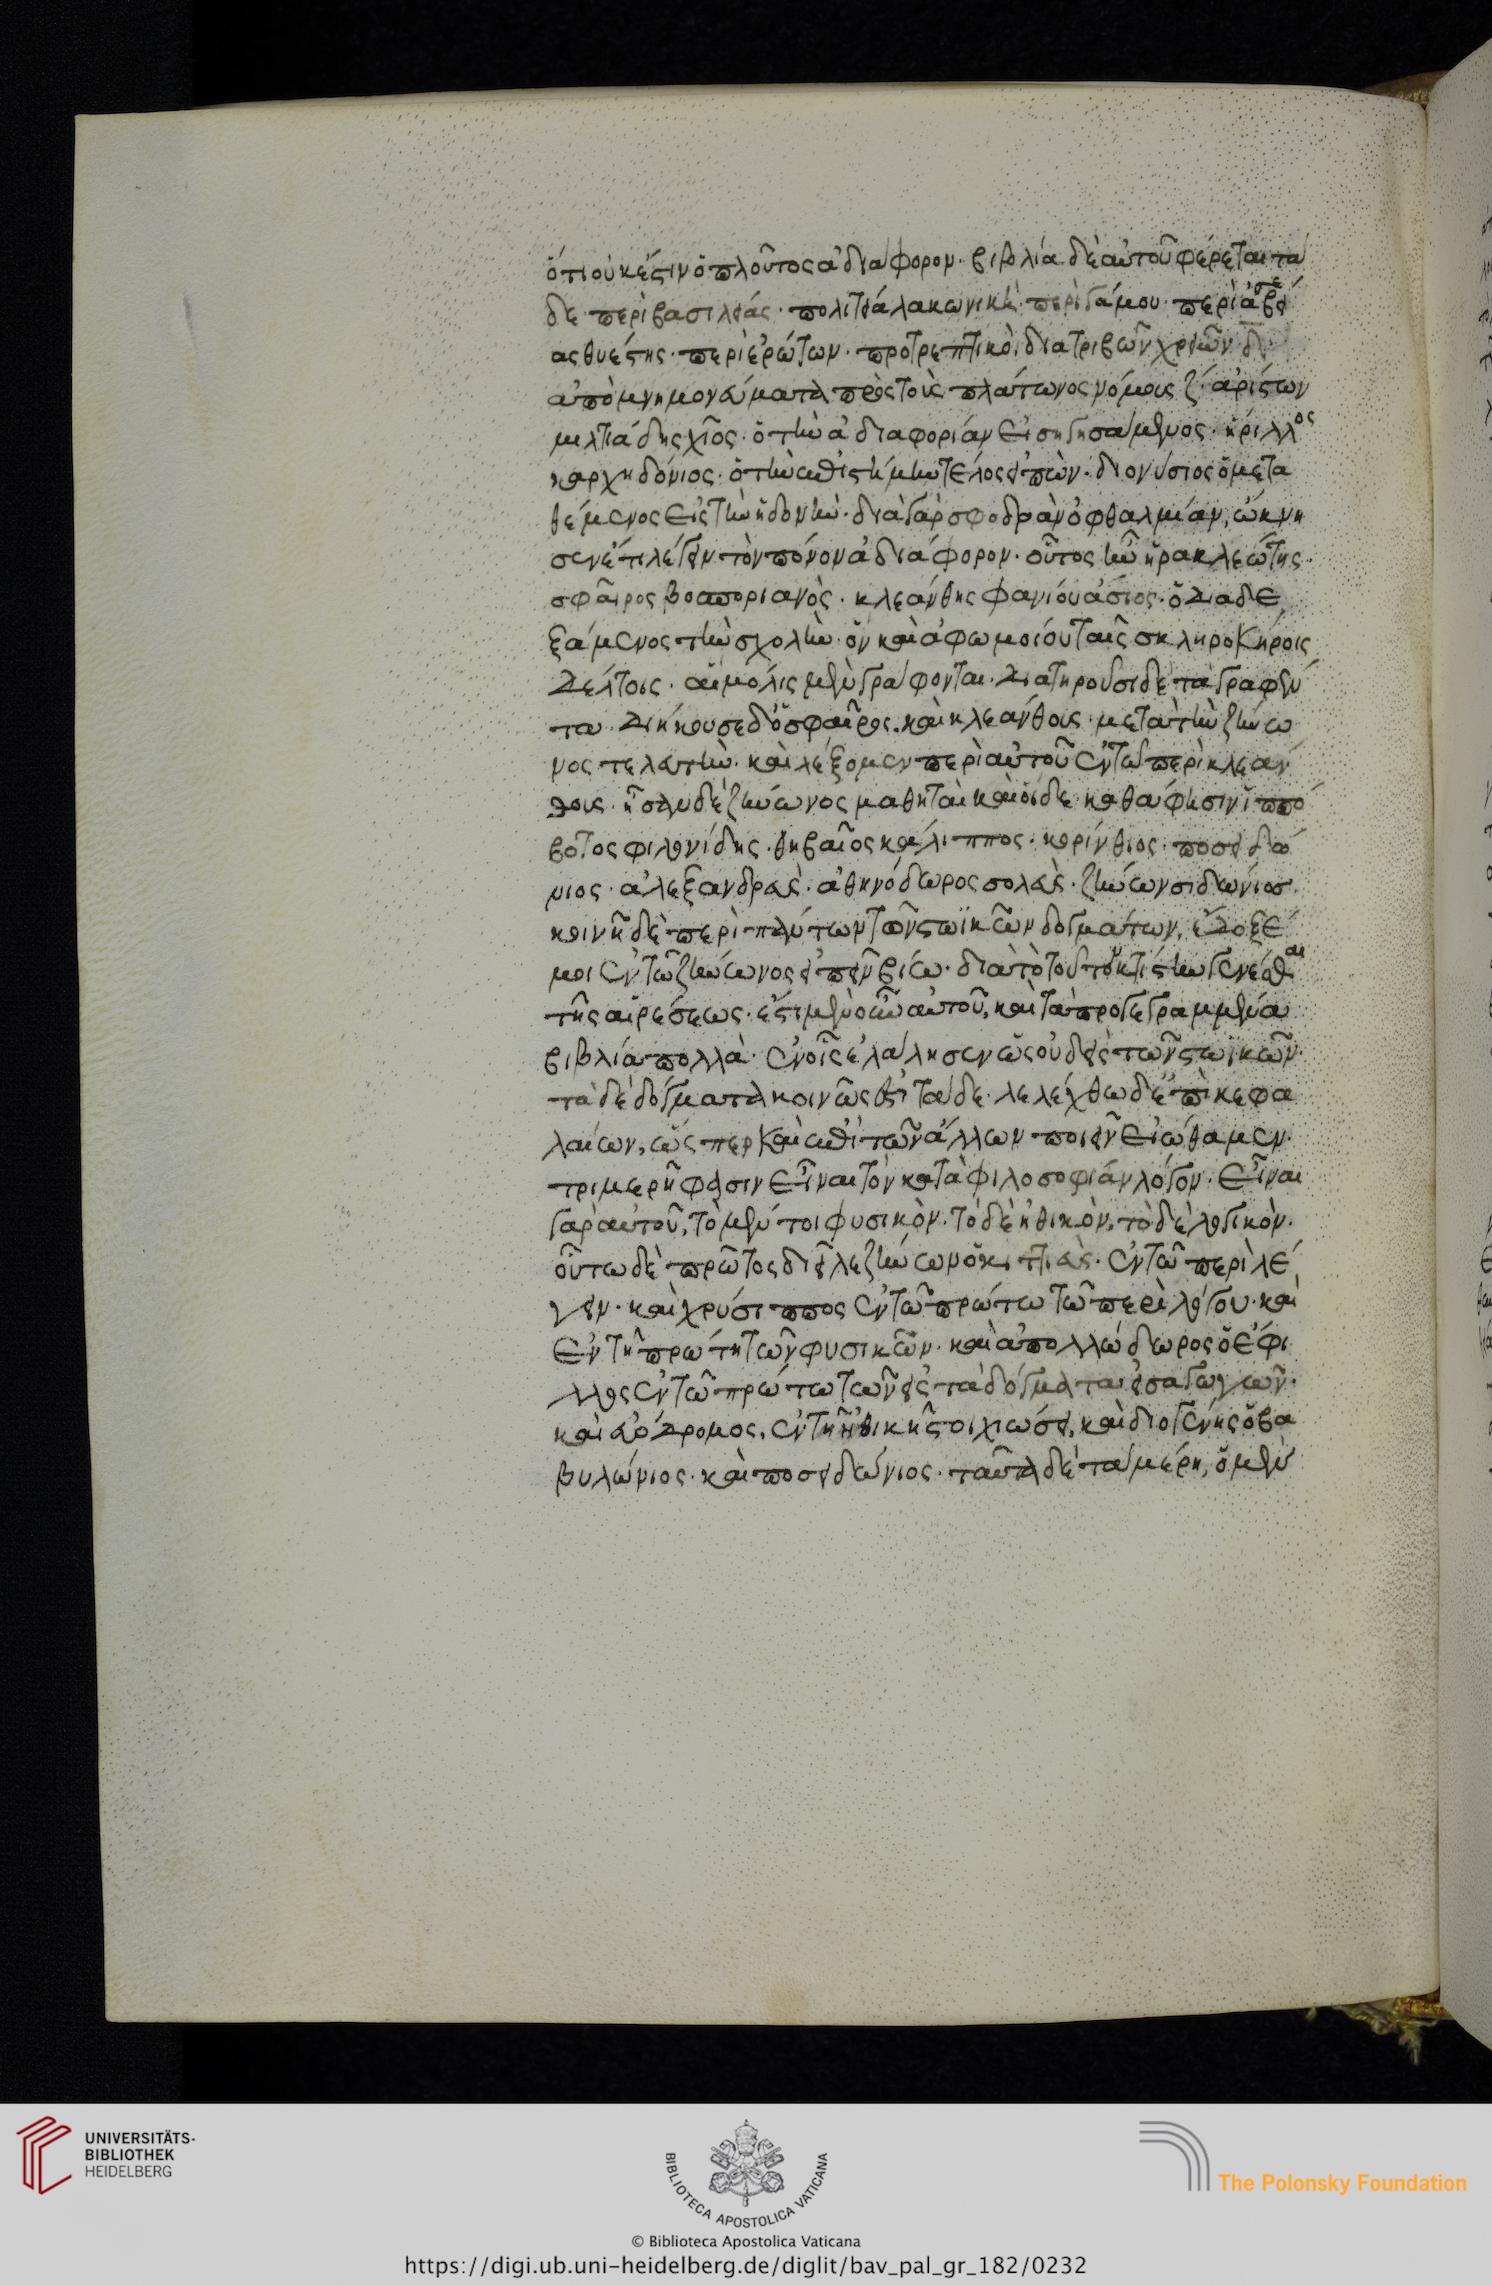 ὅτι οὐκ ἔστιν ὁ πλοῦτος ἀδιάφορον· βιβλία δὲ αὐτοῦ φέρεται τά
δε περὶ βασιλείας· πολιτεία λακωνική· περὶ γάμου· περὶ ἀσεβεί
ας θυέστης· περὶ ἐρώτων· προτρεπτικοὶ διατριβῶν χρειῶν
ἀπομνημονεύματα πρὸς τοὺς πλάτωνος νόμους ζ· ἀρίστων
μιλτιάδης χῖος· ὁ τὴν ἀδιαφορίαν εἰσηγησάμενος· ἥριλλος
καρχηδόνιος· ὁ τὴν ἐπιστήμην τέλος εἰπών· διονύσιος ὁ μετα
θέμενος εἰς τὴν ἡδονήν· διὰ γὰρ σφοδρὰν ὀφθαλμίαν, ὤκνη
σεν ἔτι λέγειν τὸν πόνον ἀδιάφορον· οὗτος ἦν ἡρακλεώτης·
σφαῖρος βοσποριανὸς· κλεάνθης φανίου ἄσιος· ὁ διαδε
ξάμενος τὴν σχολήν· ὃν καὶ ἀφωμοίου ταῖς σκληροκήροις
δέλτοις· αἳ μόλις μὲν γράφονται· διατηροῦσι δὲ τὰ γραφέν
τα· διήκουσε δ' ὁ σφαῖρος· καὶ κλεάνθους· μετὰ τὴν ζήνω
νος τελευτήν· καὶ λέξομεν περὶ αὐτοῦ ἐν τῷ περὶ κλεάν
θους· ἦσαν δὲ ζήνωνος μαθηταὶ καὶ οἵδε καθά φησιν ἱππό
βοτος φιλωνίδης· θηβαῖος κάλιππος· κορίνθιος· ποσειδώ
νιος· ἀλεξανδρεὺς· ἀθηνόδωρος σολεὺς· ζήνων σιδώνιος·
κοινῇ δὲ περὶ πάντων τῶν στωϊκῶν δογμάτων, ἔδοξέ
μοι ἐν τῷ ζήνωνος εἰπεῖν βίῳ· διὰ τὸ τοῦτον κτίστην γενέσθαι
τῆς αἱρέσεως· ἔστι μὲν οὖν αὐτοῦ, καὶ τὰ προγεγραμμένα
βιβλία πολλὰ· ἐν οἷς ἐλάλησεν ὡς οὐδεὶς τῶν στωϊκῶν·
τὰ δὲ δόγματα κοινῶς ἐστι τάδε· λελέχθω δ' ἐπὶ κεφα
λαίων, ὥσπερ καὶ ἐπὶ τῶν ἄλλων ποιεῖν εἰώθαμεν·
τριμερῆ φασιν εἶναι τὸν κατὰ φιλοσοφίαν λόγον· εἶναι
γὰρ αὐτοῦ, τὸ μέν τοι φυσικὸν· τὸ δὲ ἠθικὸν, τὸ δὲ λογικὸν·
οὕτω δὲ πρῶτος διεῖλε ζήνων ὁ κιτιεὺς· ἐν τῷ περὶ λέ
γειν· καὶ χρύσιππος ἐν τῷ πρώτῳ τῷ περὶ λόγου· καὶ
ἐν τῇ πρώτῃ τῶν φυσικῶν· καὶ ἀπολλώδωρος ὁ ἔφι
λλος ἐν τῷ πρώτῳ τῶν εἰς τὰ δόγματα εἰσαγωγῶν·
καὶ εὔδρομος, ἐν τῇ ἠθικῇ στοιχιώσει, καὶ διογένης ὁ βα
βυλώνιος· καὶ ποσειδώνιος· ταῦτα δὲ τὰ μέρη, ὁ μὲν
UNIVERSITÄTS-
BIBLIOTHEK
HEIDELBERG
BIBLIOTECA APOSTOLICA VATICANA
The Polonsky Foundation
© Biblioteca Apostolica Vaticana
https://digi.ub.uni-heidelberg.de/diglit/bav_pal_gr_182/0232